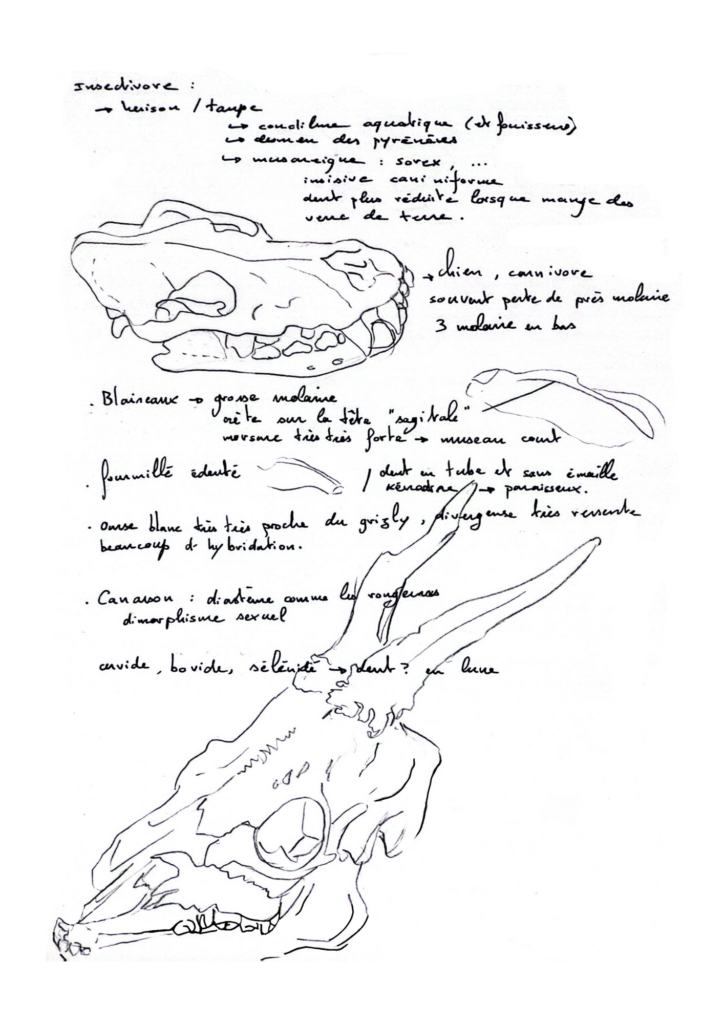 Insectivore :
→ herison / taupe
↳ condilure aquatique (et fouisseur)
↳ desmen des pyrénéres
↳ musareigne : sorex, ...
insisive caniniforme
dent plus réduite lorsque mange des
verre de terre.
→ chien, carnivore
souvent perte de près molaire
3 molaire en bas
. Blaireaux → grosse molaire
crête sur la tête "sagitale"
morsure très très forte → museau court
. fourmillé édenté
/ dent en tube et sans émaille
→ paraisseux.
. ourse blanc très très proche du grizly, divergense très ressente
beaucoup d'hybridation.
. Canasson : diastème comme les rongeures
dimorphisme sexuel
cervidé, bovidé, sélénidé → dent ? en lune